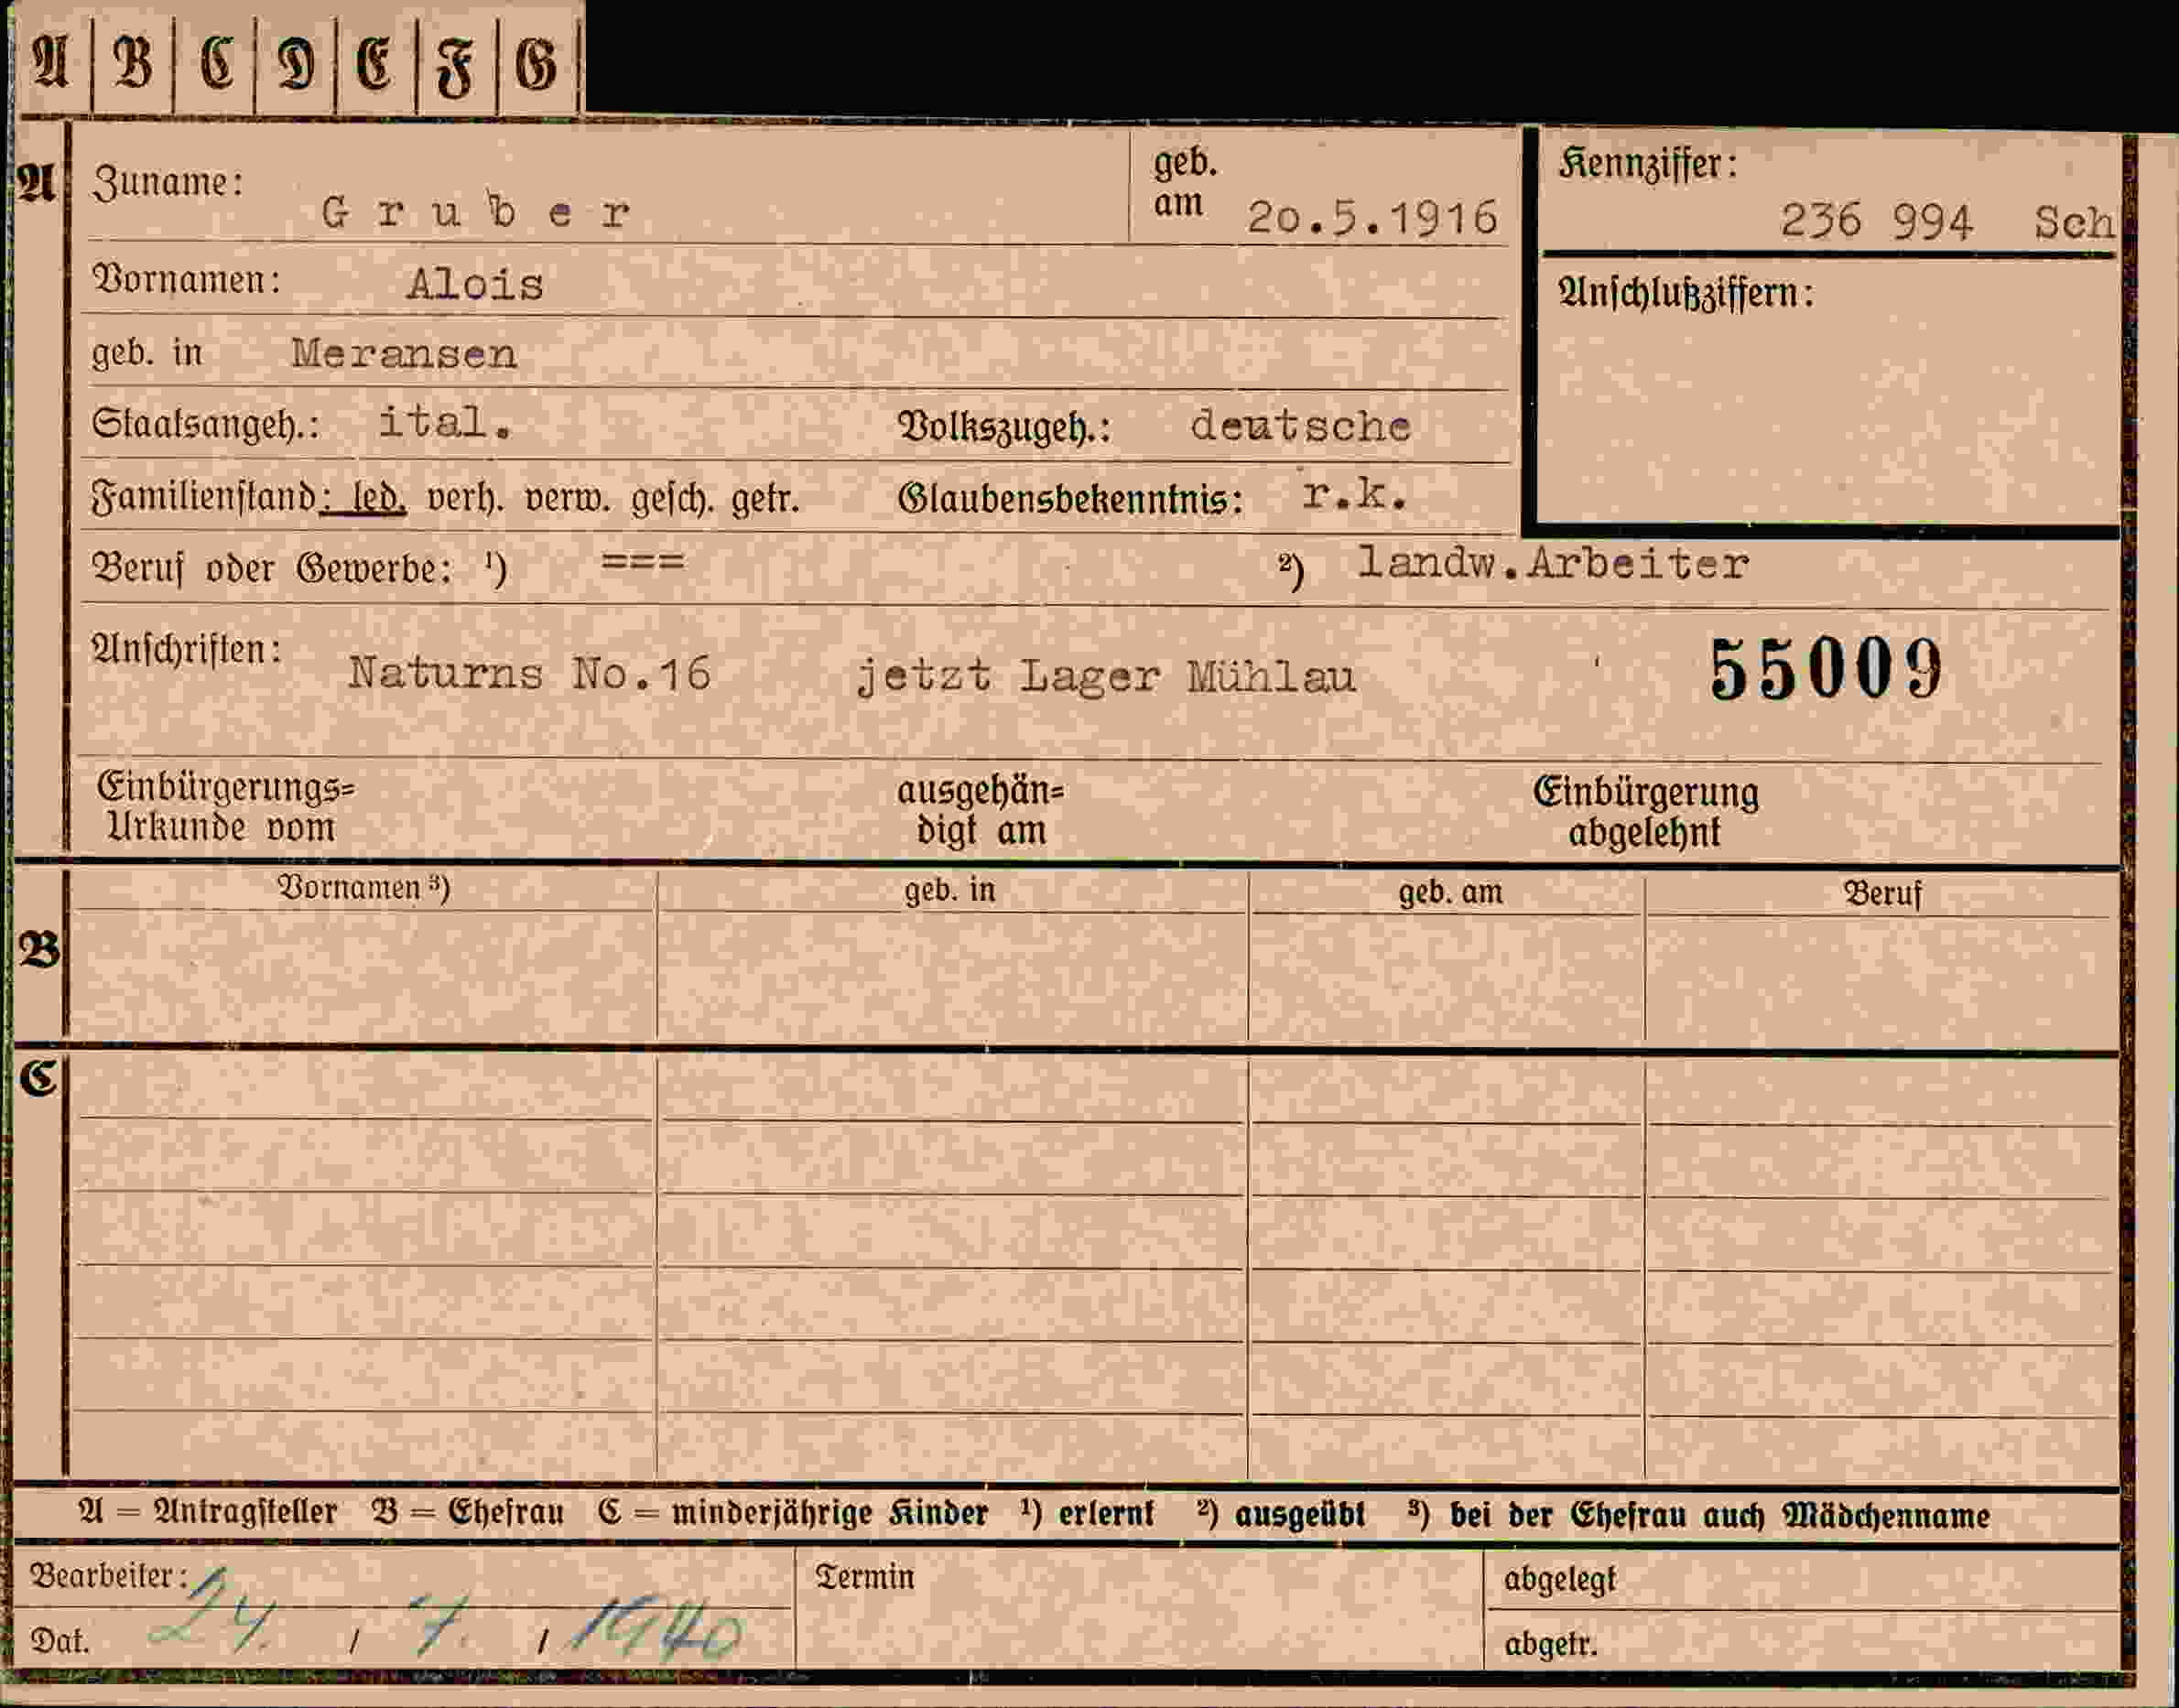 A B C D E F G
A Zuname: Gruber geb. am 20.5.1916 Kennziffer: 236 994 Sch
Vornamen: Alois Anschlußziffern:
geb. in Meransen
Staatsangeh.: ital. Volkszugeh.: deutsche
Familienstand: led. verh. verw. gesch. getr. Glaubensbekenntnis: r.k.
Beruf oder Gewerbe: ¹) === ²) landw.Arbeiter
Anschriften: Naturns No.16 jetzt Lager Mühlau 55009
Einbürgerungs= ausgehän= Einbürgerung
Urkunde vom digt am abgelehnt
Vornamen ³) geb. in geb. am Beruf
B
C
A = Antragsteller B = Ehefrau C = minderjährige Kinder ¹) erlernt ²) ausgeübt ³) bei der Ehefrau auch Mädchenname
Bearbeiter: Termin abgelegt
Dat. 24. / 7. / 1940 abgetr.